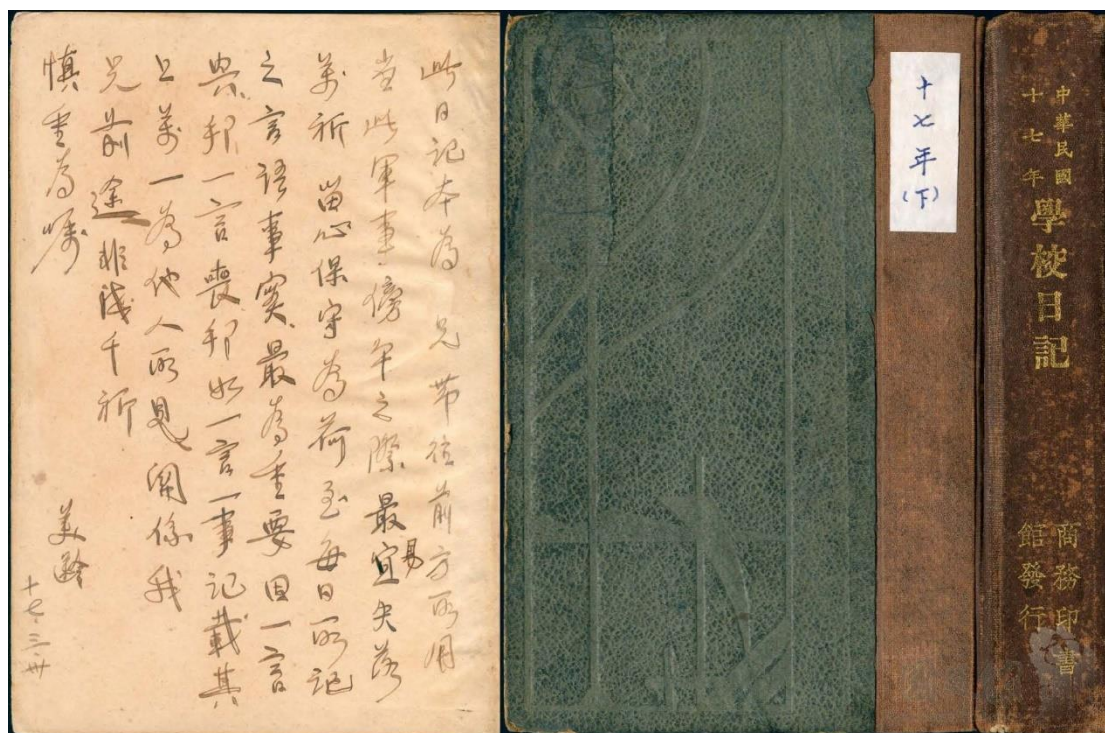 此日記本為 兄帶往前方所用
當此軍事傍午之際最宜易失落
萬祈 留心保守為荷至每日所記
之言語事實最為重要因一言
興邦一言喪邦如一言一事記載其
上萬一為他人所見關係我
兄前途非淺千祈
慎重為囑
美齡
十七.三.卅
十七年(下)
中華民國
十七年
學校日記
商務印書
館發行